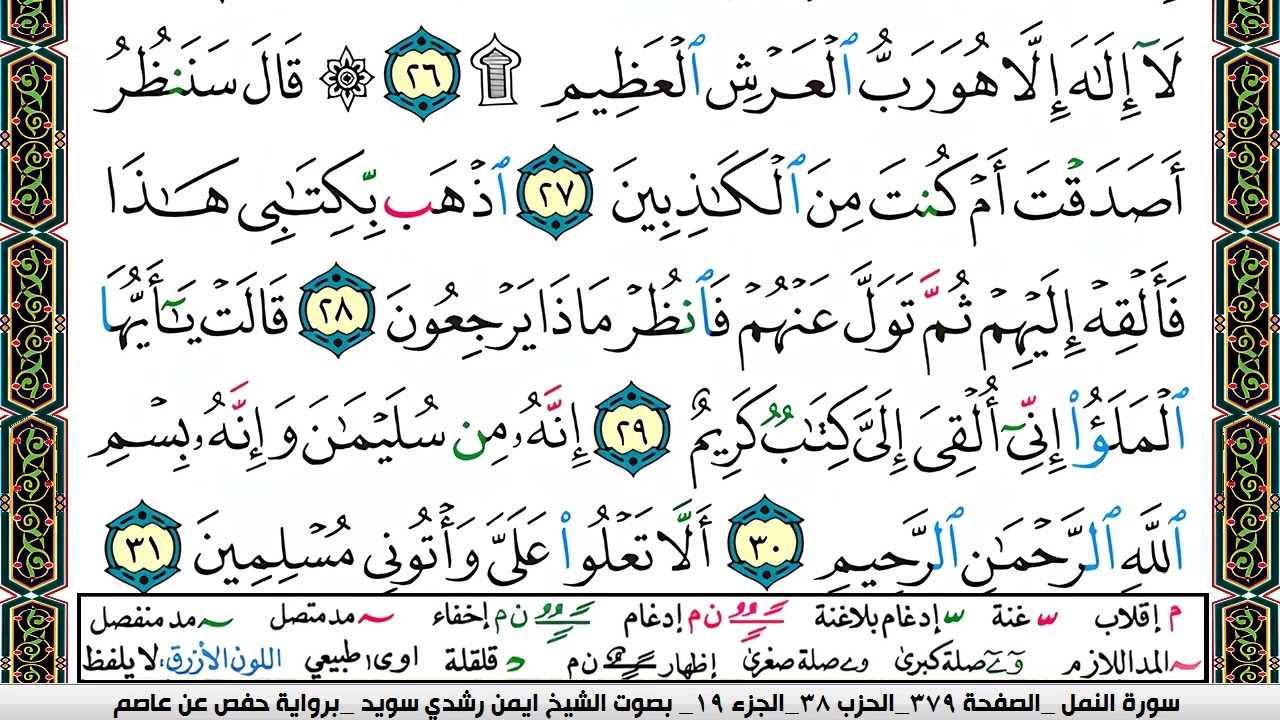 لَآ إِلَٰهَ إِلَّا هُوَ رَبُّ ٱلْعَرْشِ ٱلْعَظِيمِ ۩ ٢٦ ۞ قَالَ سَنَنظُرُ
أَصَدَقْتَ أَمْ كُنتَ مِنَ ٱلْكَٰذِبِينَ ٢٧ ٱذْهَب بِّكِتَٰبِى هَٰذَا
فَأَلْقِهْ إِلَيْهِمْ ثُمَّ تَوَلَّ عَنْهُمْ فَٱنظُرْ مَاذَا يَرْجِعُونَ ٢٨ قَالَتْ يَٰٓأَيُّهَا
ٱلْمَلَؤُا۟ إِنِّىٓ أُلْقِىَ إِلَىَّ كِتَٰبٌ كَرِيمٌ ٢٩ إِنَّهُۥ مِن سُلَيْمَٰنَ وَإِنَّهُۥ بِسْمِ
ٱللَّهِ ٱلرَّحْمَٰنِ ٱلرَّحِيمِ ٣٠ أَلَّا تَعْلُوا۟ عَلَىَّ وَأْتُونِى مُسْلِمِينَ ٣١
م إقلاب غنة إدغام بلاغنة ن م إدغام ن م إخفاء مد متصل مد منفصل
المد اللازم صلة كبرى صلة صغرى إظهار ن م قلقلة اوى طبيعي اللون الأزرق، لا يلفظ
سورة النمل _الصفحة ٣٧٩_الحزب ٣٨_الجزء ١٩_ بصوت الشيخ ايمن رشدي سويد _برواية حفص عن عاصم